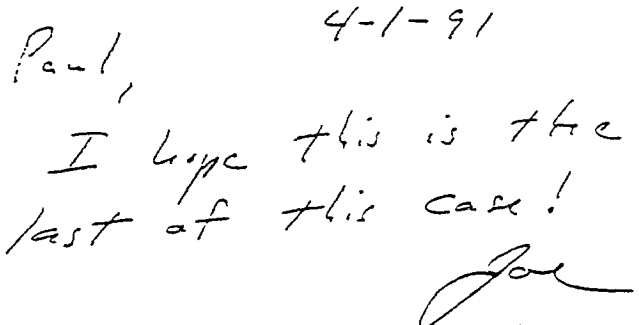 4-1-91
Paul,
I hope this is the
last of this case!
Joe